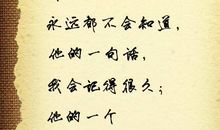 永远都不会知道，
他的一句话，
我会记得很久；
他的一个